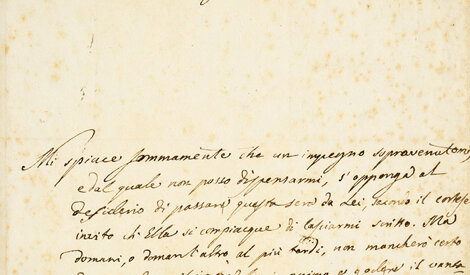 Mi spiace sommamente che un impegno sopravenutomi
e dal quale non posso dispensarmi, s'opponga al
desiderio di passare questa sera da Lei, secondo il cortese
invito ch'Ella si compiacque di lasciarmi scritto. Ma
domani, o domant'altro al più tardi, non mancherò certo
anima e godere il canto